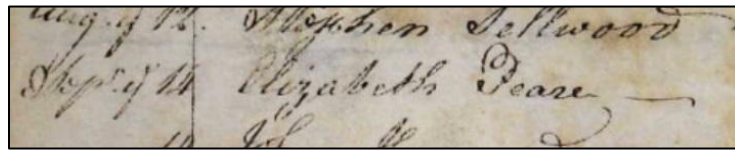 Aug. ye 12. Stephen Sellwood
Sepr. ye 14 Elizabeth Pearse